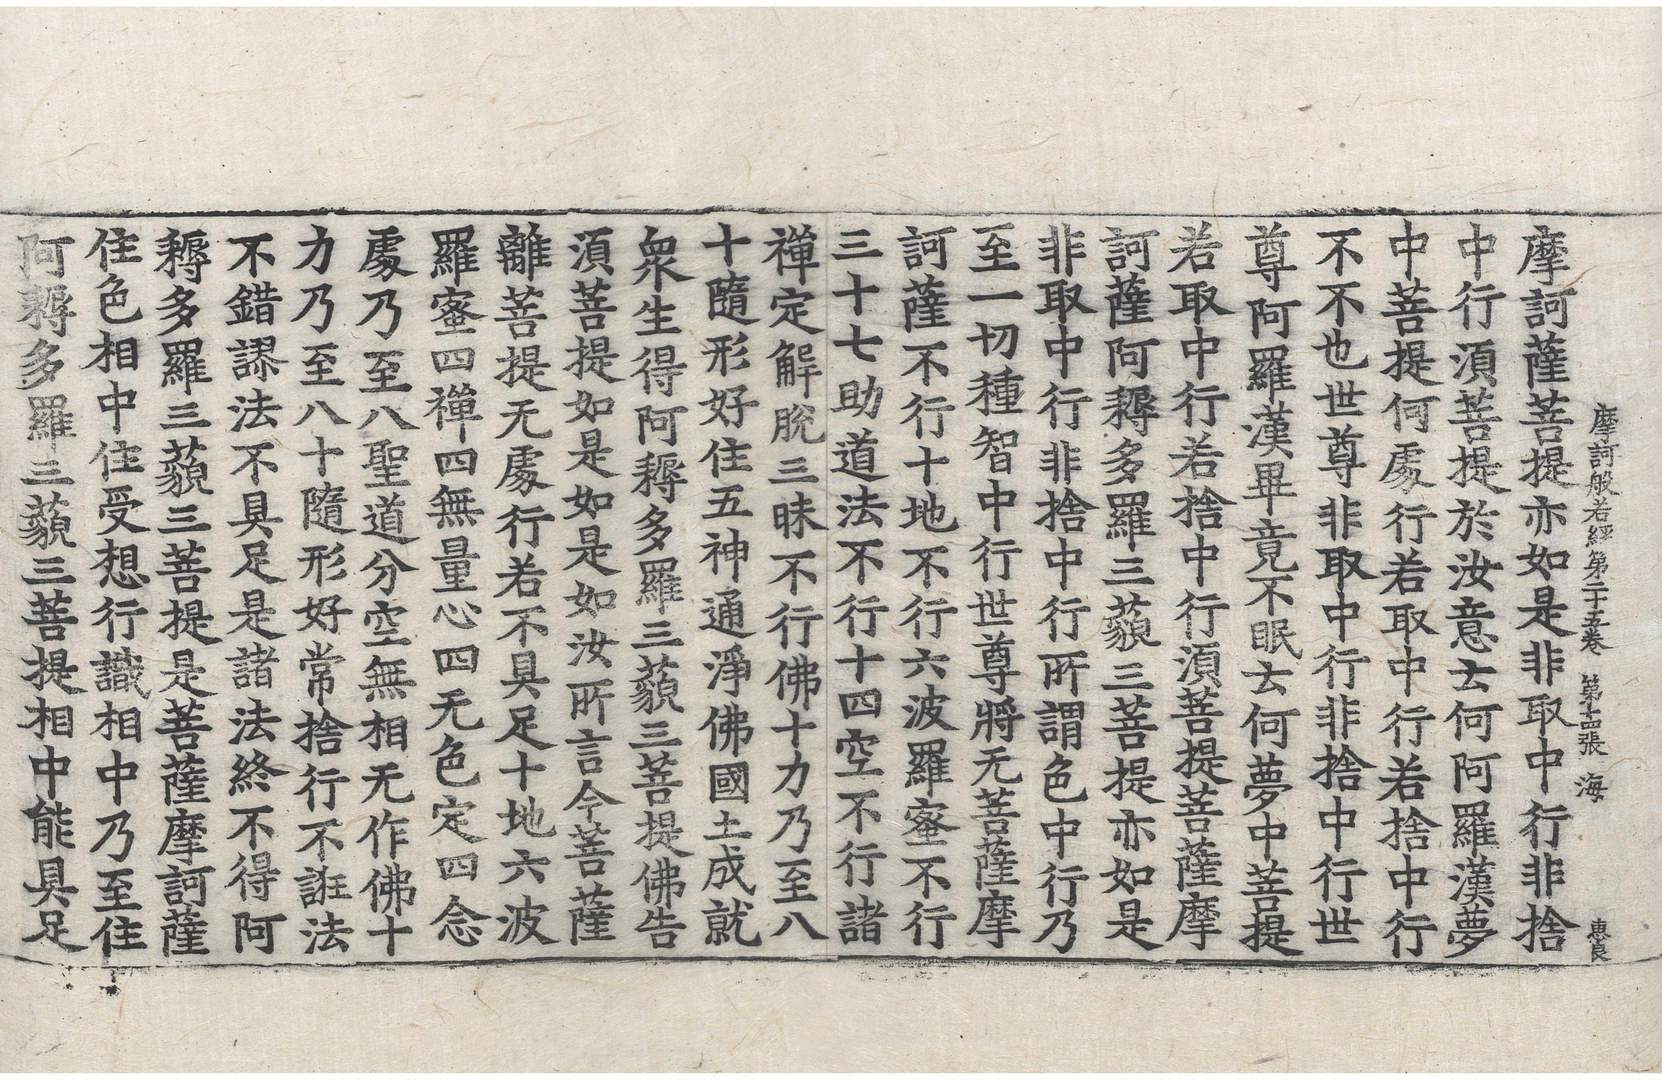 摩訶般若經第二十五卷 第十四張 海 惠良
摩訶薩菩提亦如是非取中行非捨
中行湏菩提於汝意云何阿羅漢夢
中菩提何處行若取中行若捨中行
不不也世尊非取中行非捨中行世
尊阿羅漢畢竟不眠云何夢中菩提
若取中行若捨中行湏菩提菩薩摩
訶薩阿耨多羅三藐三菩提亦如是
非取中行非捨中行所謂色中行乃
至一切種智中行世尊將无菩薩摩
訶薩不行十地不行六波羅蜜不行
三十七助道法不行十四空不行諸
禪定解脫三昧不行佛十力乃至八
十隨形好住五神通淨佛國土成就
衆生得阿耨多羅三藐三菩提佛告
湏菩提如是如是如汝所言今菩薩
離菩提无處行若不具足十地六波
羅蜜四禪四無量心四无色定四念
處乃至八聖道分空無相无作佛十
力乃至八十隨形好常捨行不誑法
不錯謬法不具足是諸法終不得阿
耨多羅三藐三菩提是菩薩摩訶薩
住色相中住受想行識相中乃至住
阿耨多羅三藐三菩提相中能具足